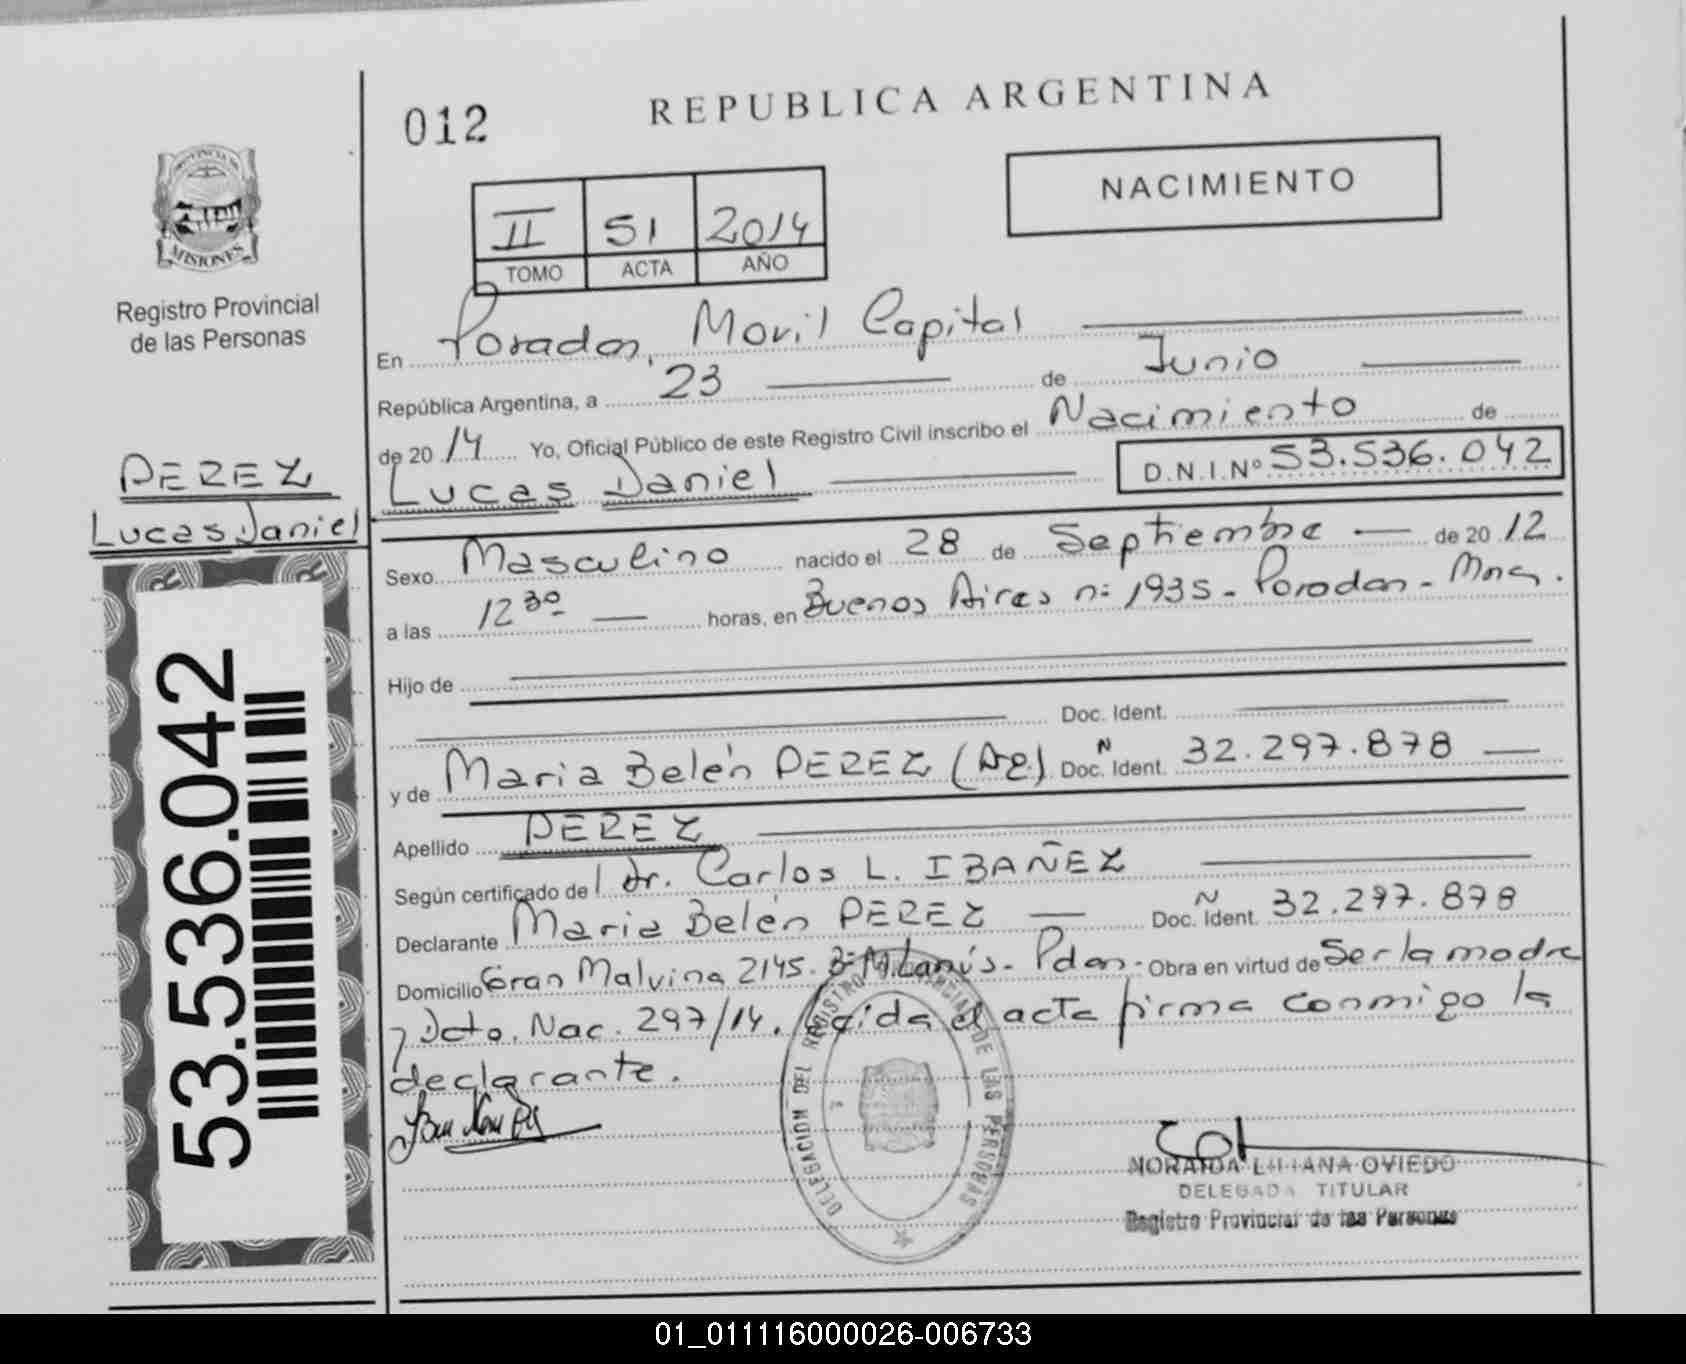 012
REPUBLICA ARGENTINA
NACIMIENTO
II 51 2014
TOMO ACTA AÑO
PROVINCIA DE
MISIONES
Registro Provincial
de las Personas
PEREZ
Lucas Daniel
53.536.042
En Posadas, Movil Capital
República Argentina, a 23 de Junio
de 20 14 Yo, Oficial Público de este Registro Civil inscribo el Nacimiento de
Lucas Daniel D.N.I.Nº 53.536.042
Sexo Masculino nacido el 28 de Septiembre de 20 12
a las 12 30 horas, en Buenos Aires nº 1935 - Posadas - Mnes.
Hijo de
Doc. Ident.
y de Maria Belén PEREZ (Ag) Doc. Ident. N 32.297.878
Apellido PEREZ
Según certificado del Dr. Carlos L. IBAÑEZ
Declarante Maria Belén PEREZ Doc. Ident. N 32.297.878
Domicilio Gran Malvina 2145. Bº M. Lanús - Pdas - Obra en virtud de Ser la madre
y Dcto. Nac. 297/14. Leida el acta firma conmigo la
declarante.
DELEGACIÓN DEL REGISTRO PROVINCIAL DE LAS PERSONAS
NORAIDA LILIANA OVIEDO
DELEGADA TITULAR
Registro Provincial de las Personas
01_011116000026-006733